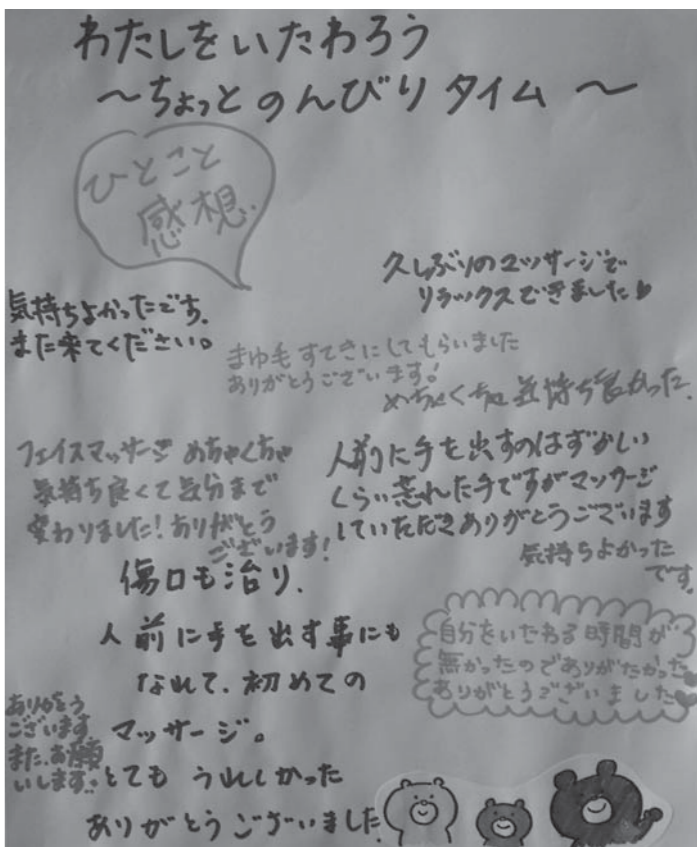 わたしをいたわろう
～ちょっとのんびりタイム～
ひとこと
感想.
久しぶりのマッサージで
リラックスできました♥
気持ちよかったです.
また来てください。
まゆ毛すてきにしてもらいました
ありがとうございます!
めちゃくちゃ気持ち良かった.
フェイスマッサージ めちゃくちゃ
気持ち良くて気分まで
変わりました!ありがとう
ございます!
人前に手を出すのはずかしい
くらい荒れた手ですがマッサージ
していただきありがとうございます
気持ちよかった
です.
傷口も治り.
人前に手を出す事にも
なれて.初めての
マッサージ。
とても うれしかった
ありがとうございました.
自分をいたわる時間が
無かったのでありがたかった
ありがとうございました
ありがとう
ございます.
また、お願
いします..